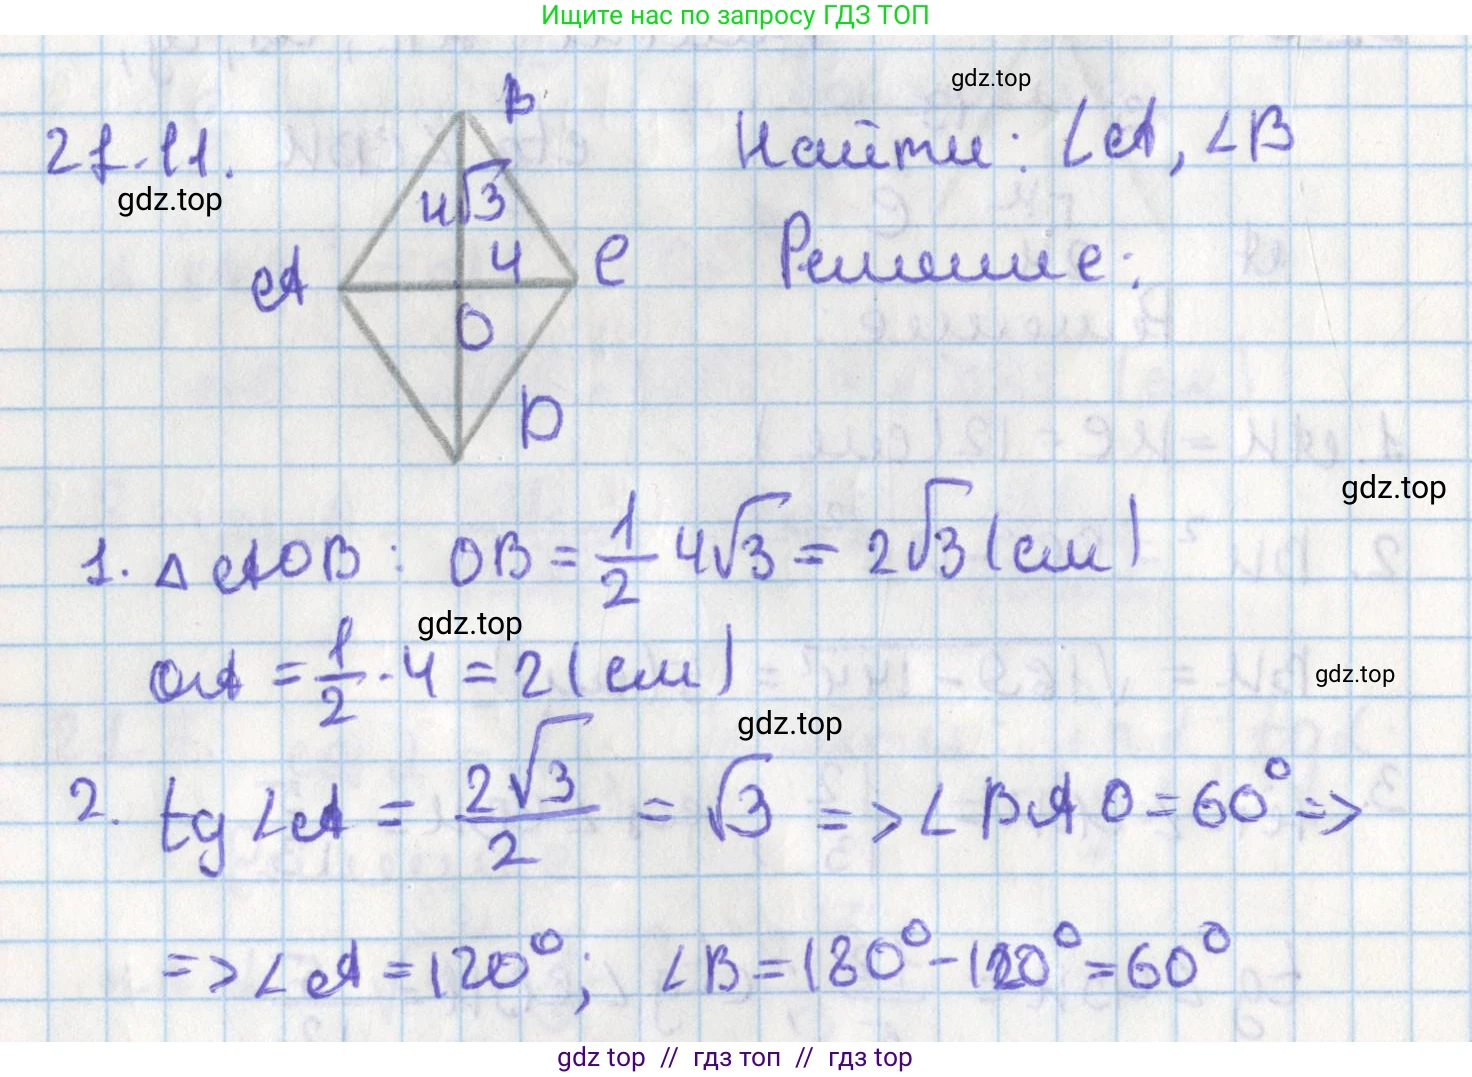 Ищите нас по запросу ГДЗ ТОП
gdz.top
21.11.
gdz.top
B
4√3
4
A
C
O
D
Найти: ∠A, ∠B
Решение:
gdz.top
1. △AOB: OB = 1/2 4√3 = 2√3 (см)
gdz.top
OA = 1/2 · 4 = 2 (см)
gdz.top
gdz.top
2. tg ∠A = 2√3/2 = √3 => ∠BAO = 60° =>
=> ∠A = 120°; ∠B = 180° - 120° = 60°
gdz top // гдз топ // гдз top